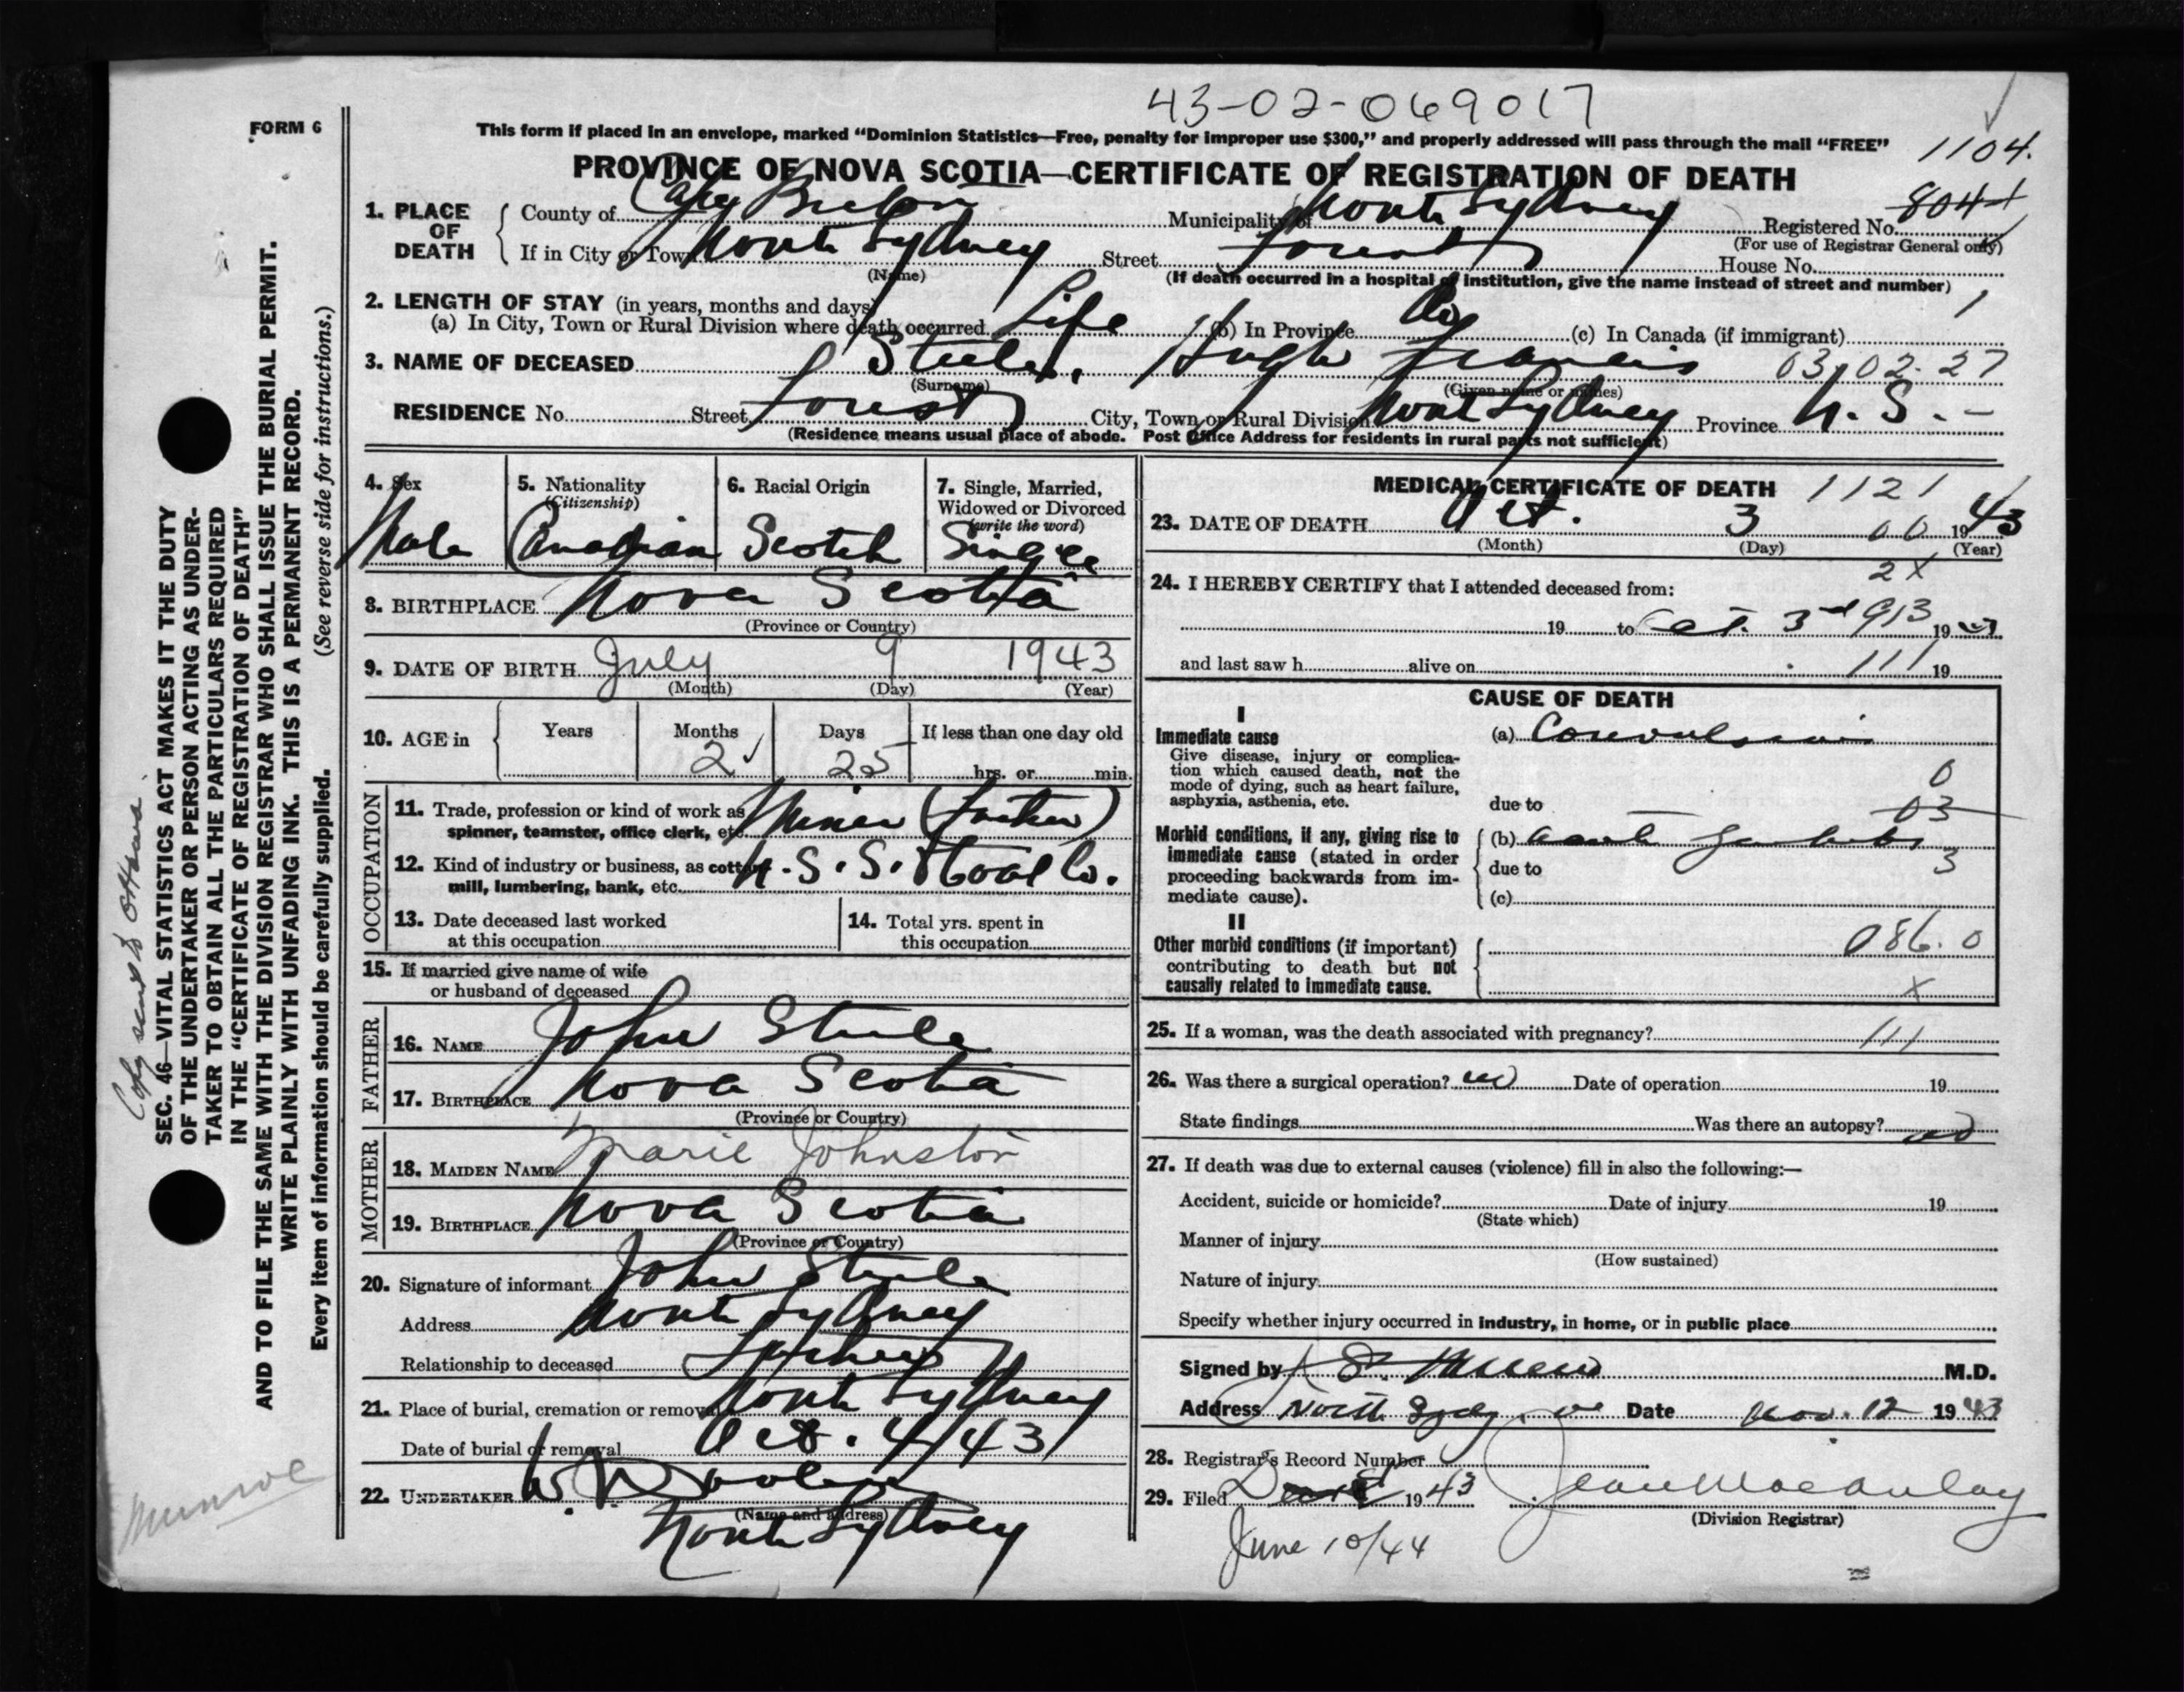 43-02-069017
FORM 6
This form if placed in an envelope, marked “Dominion Statistics—Free, penalty for improper use $300,” and properly addressed will pass through the mail “FREE”
1104.
PROVINCE OF NOVA SCOTIA—CERTIFICATE OF REGISTRATION OF DEATH
1. PLACE OF DEATH
County of Cape Breton Municipality of North Sydney Registered No. 804
(For use of Registrar General only)
If in City or Town North Sydney Street Forest House No.
(Name)
(If death occurred in a hospital of institution, give the name instead of street and number)
2. LENGTH OF STAY (in years, months and days)
(a) In City, Town or Rural Division where death occurred Life (b) In Province Do (c) In Canada (if immigrant) 1
3. NAME OF DECEASED Steele, Hugh Francis 03,02.27
(Surname) (Given name or names)
RESIDENCE No. Street Forest City, Town or Rural Division North Sydney Province N. S. -
(Residence means usual place of abode. Post Office Address for residents in rural parts not sufficient)
4. Sex
Male
5. Nationality
(Citizenship)
Canadian
6. Racial Origin
Scotch
7. Single, Married,
Widowed or Divorced
(write the word)
Single
8. BIRTHPLACE Nova Scotia
(Province or Country)
9. DATE OF BIRTH July 9 1943
(Month) (Day) (Year)
10. AGE in Years Months Days If less than one day old
2 25 hrs. or min.
OCCUPATION
11. Trade, profession or kind of work as Miner (Father)
spinner, teamster, office clerk, etc.
12. Kind of industry or business, as cotton N. S. S. & Coal Co.
mill, lumbering, bank, etc.
13. Date deceased last worked
at this occupation
14. Total yrs. spent in
this occupation
15. If married give name of wife
or husband of deceased
FATHER
16. NAME John Steele
17. BIRTHPLACE Nova Scotia
(Province or Country)
MOTHER
18. MAIDEN NAME Marie Johnston
19. BIRTHPLACE Nova Scotia
(Province or Country)
20. Signature of informant John Steele
Address North Sydney
Relationship to deceased Father
21. Place of burial, cremation or removal North Sydney
Date of burial or removal Oct. 4/43
22. UNDERTAKER W.
(Name and address)
North Sydney
MEDICAL CERTIFICATE OF DEATH 1121
23. DATE OF DEATH Oct. 3 00 1943
(Month) (Day) (Year)
2X
24. I HEREBY CERTIFY that I attended deceased from:
19 to Oct. 3rd 913 19 43
and last saw h alive on 111 19
CAUSE OF DEATH
I
Immediate cause
Give disease, injury or complica-
tion which caused death, not the
mode of dying, such as heart failure,
asphyxia, asthenia, etc.
(a) Convulsions
0
due to 03
Morbid conditions, if any, giving rise to
immediate cause (stated in order
proceeding backwards from im-
mediate cause).
(b) acute
3
due to
(c)
II
Other morbid conditions (if important)
contributing to death but not
causally related to immediate cause.
086.0
X
25. If a woman, was the death associated with pregnancy? 111
26. Was there a surgical operation? no Date of operation 19
State findings Was there an autopsy? no
27. If death was due to external causes (violence) fill in also the following:—
Accident, suicide or homicide? Date of injury 19
(State which)
Manner of injury
(How sustained)
Nature of injury
Specify whether injury occurred in industry, in home, or in public place
Signed by M.D.
Address North Date Nov. 12 1943
28. Registrar's Record Number
29. Filed 1943 Jean Macaulay
(Division Registrar)
June 10/44
Copy sent to Ottawa
SEC. 46—VITAL STATISTICS ACT MAKES IT THE DUTY
OF THE UNDERTAKER OR PERSON ACTING AS UNDER-
TAKER TO OBTAIN ALL THE PARTICULARS REQUIRED
IN THE “CERTIFICATE OF REGISTRATION OF DEATH”
AND TO FILE THE SAME WITH THE DIVISION REGISTRAR WHO SHALL ISSUE THE BURIAL PERMIT.
WRITE PLAINLY WITH UNFADING INK. THIS IS A PERMANENT RECORD.
Every item of information should be carefully supplied. (See reverse side for instructions.)
Munroe